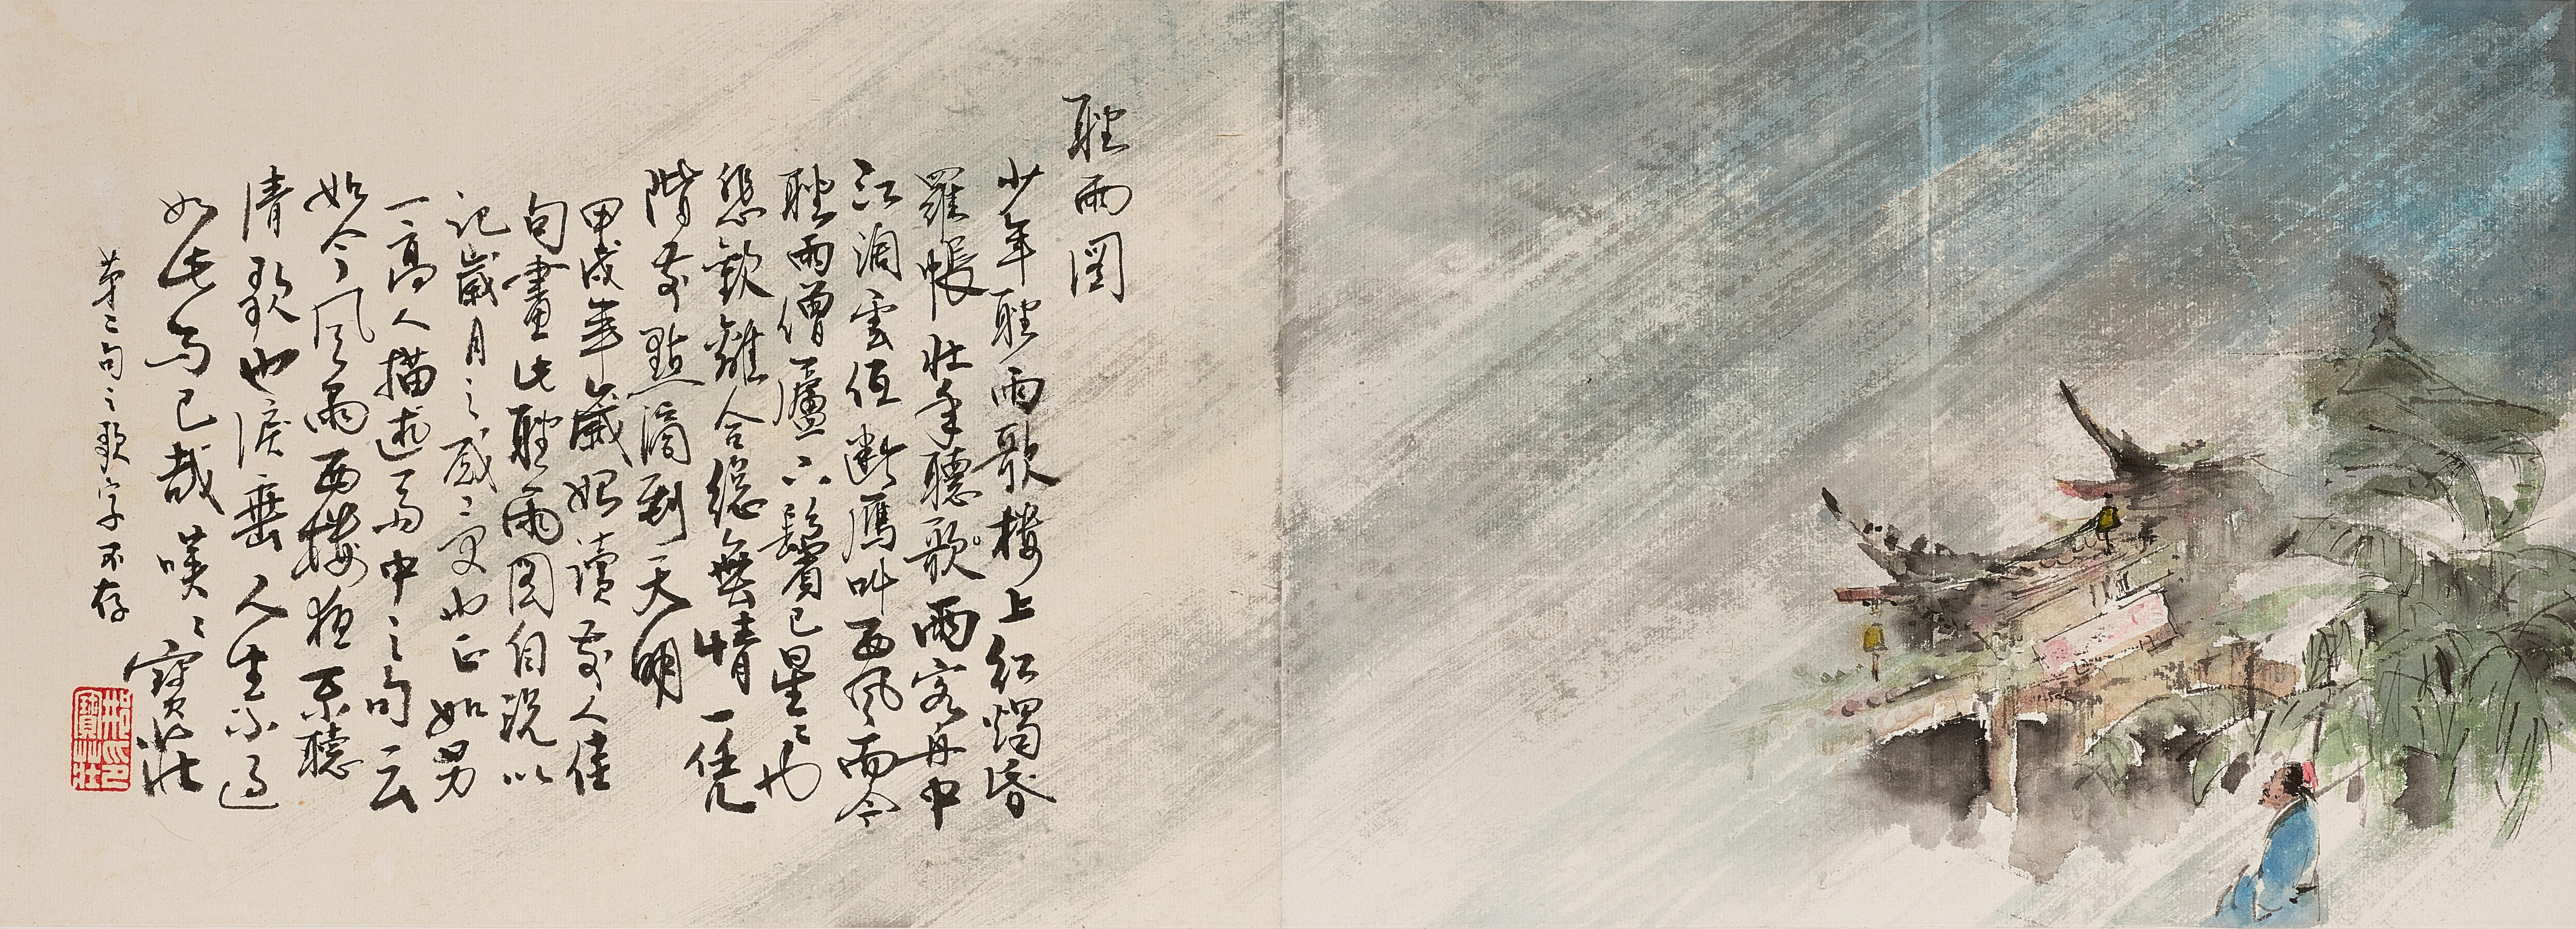 聽雨图
少年聽雨歌樓上红燭昏
羅帳壮年聽歌雨客舟中
江阔雲低断雁叫西风而今
聽雨僧廬下鬓已星〻也
悲歡離合總無情一任凭
階前點滴到天明
甲戌年歲始讀前人佳
句畫此聽雨图自説以
记歲月之感〻变也正如另
一高人描述雨中之句云
如今风雨西樓夜不聽
清歌也淚垂人生不過
如此而已哉嘆〻寶莊
第二句之歌字不存
邢印寶莊